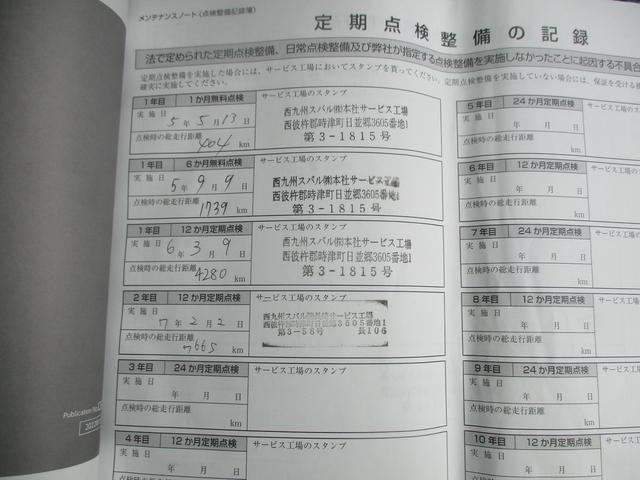 メンテナンスノート（点検整備記録簿）
定期点検整備の記録
法で定められた定期点検整備、日常点検整備及び弊社が指定する点検整備を実施しなかったことに起因する不具合
定期点検整備を実施した場合には、サービス工場においてスタンプを貰ってください。定期点検整備を実施していない場合には、保証を受ける
確実に実施してください。
1年目 1か月無料点検 サービス工場のスタンプ
実施日
5年5月13日
点検時の総走行距離
404 km
西九州スバル㈱本社サービス工場
西彼杵郡時津町日並郷3605番地1
第3-1815号
1年目 6か月無料点検 サービス工場のスタンプ
実施日
5年9月9日
点検時の総走行距離
1739 km
西九州スバル㈱本社サービス工場
西彼杵郡時津町日並郷3605番地1
第3-1815号
1年目 12か月定期点検 サービス工場のスタンプ
実施日
6年3月9日
点検時の総走行距離
4280 km
西九州スバル㈱本社サービス工場
西彼杵郡時津町日並郷3605番地1
第3-1815号
2年目 12か月定期点検 サービス工場のスタンプ
実施日
7年2月2日
点検時の総走行距離
7665 km
西九州スバル㈱長崎サービス工場
西彼杵郡時津町日並郷3605番地1
第3-58号 長106
3年目 24か月定期点検 サービス工場のスタンプ
実施日
年 月 日
点検時の総走行距離
km
4年目 12か月定期点検 サービス工場のスタンプ
実施日
年 月 日
5年目 24か月定期点検 サービス
実施日
年 月 日
点検時の総走行距離
km
6年目 12か月定期点検 サービス
実施日
年 月 日
点検時の総走行距離
km
7年目 24か月定期点検 サービス
実施日
年 月 日
点検時の総走行距離
km
8年目 12か月定期点検 サービス
実施日
年 月 日
点検時の総走行距離
km
9年目 24か月定期点検 サービ
実施日
年 月 日
点検時の総走行距離
km
10年目 12か月定期点検 サービ
実施日
年 月 日
Publication No.